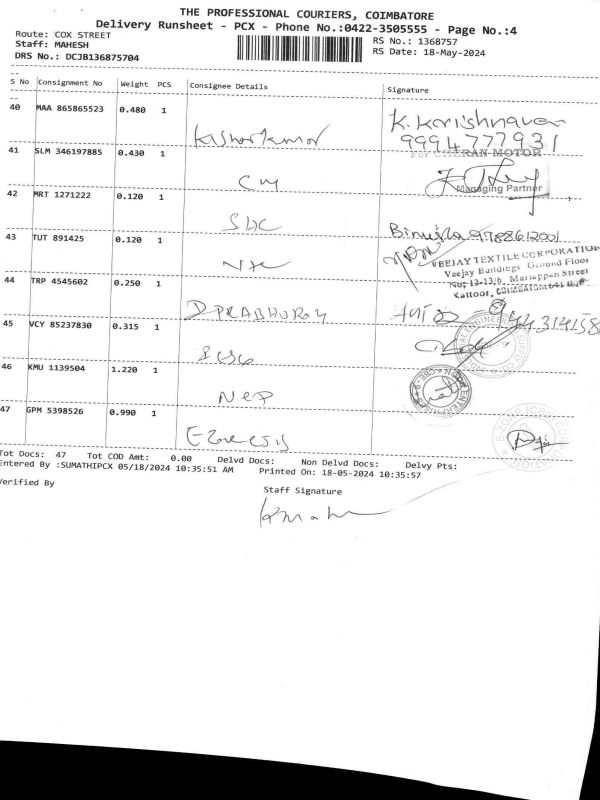 THE PROFESSIONAL COURIERS, COIMBATORE
Delivery Runsheet - PCX - Phone No.:0422-3505555 - Page No.:4
Route: COX STREET
RS No.: 1368757
Staff: MAHESH
RS Date: 18-May-2024
DRS No.: DCJB136875704
S No Consignment No Weight PCS Consignee Details Signature
40 MAA 865865523 0.480 1 Kishorkumar K. Korishnaven
9994777931
For CHERAN MOTOR
41 SLM 346197885 0.430 1 CM
Managing Partner
42 MRT 1271222 0.120 1 SHC 9788612001
43 TUT 891425 0.120 1
VEEJAY TEXTILE CORPORATION
Veejay Buildings Ground Floor
No; 12-13/6, Mariappan Street
Kattoor, COIMBATORE-641
44 TRP 4545602 0.250 1 D PRABHURAM
45 VCY 85237830 0.315 1
46 KMU 1139504 1.220 1 NEP
47 GPM 5398526 0.990 1
Tot Docs: 47 Tot COD Amt: 0.00 Delvd Docs: Non Delvd Docs: Delvy Pts:
Entered By :SUMATHIPCX 05/18/2024 10:35:51 AM Printed On: 18-05-2024 10:35:57
Verified By
Staff Signature